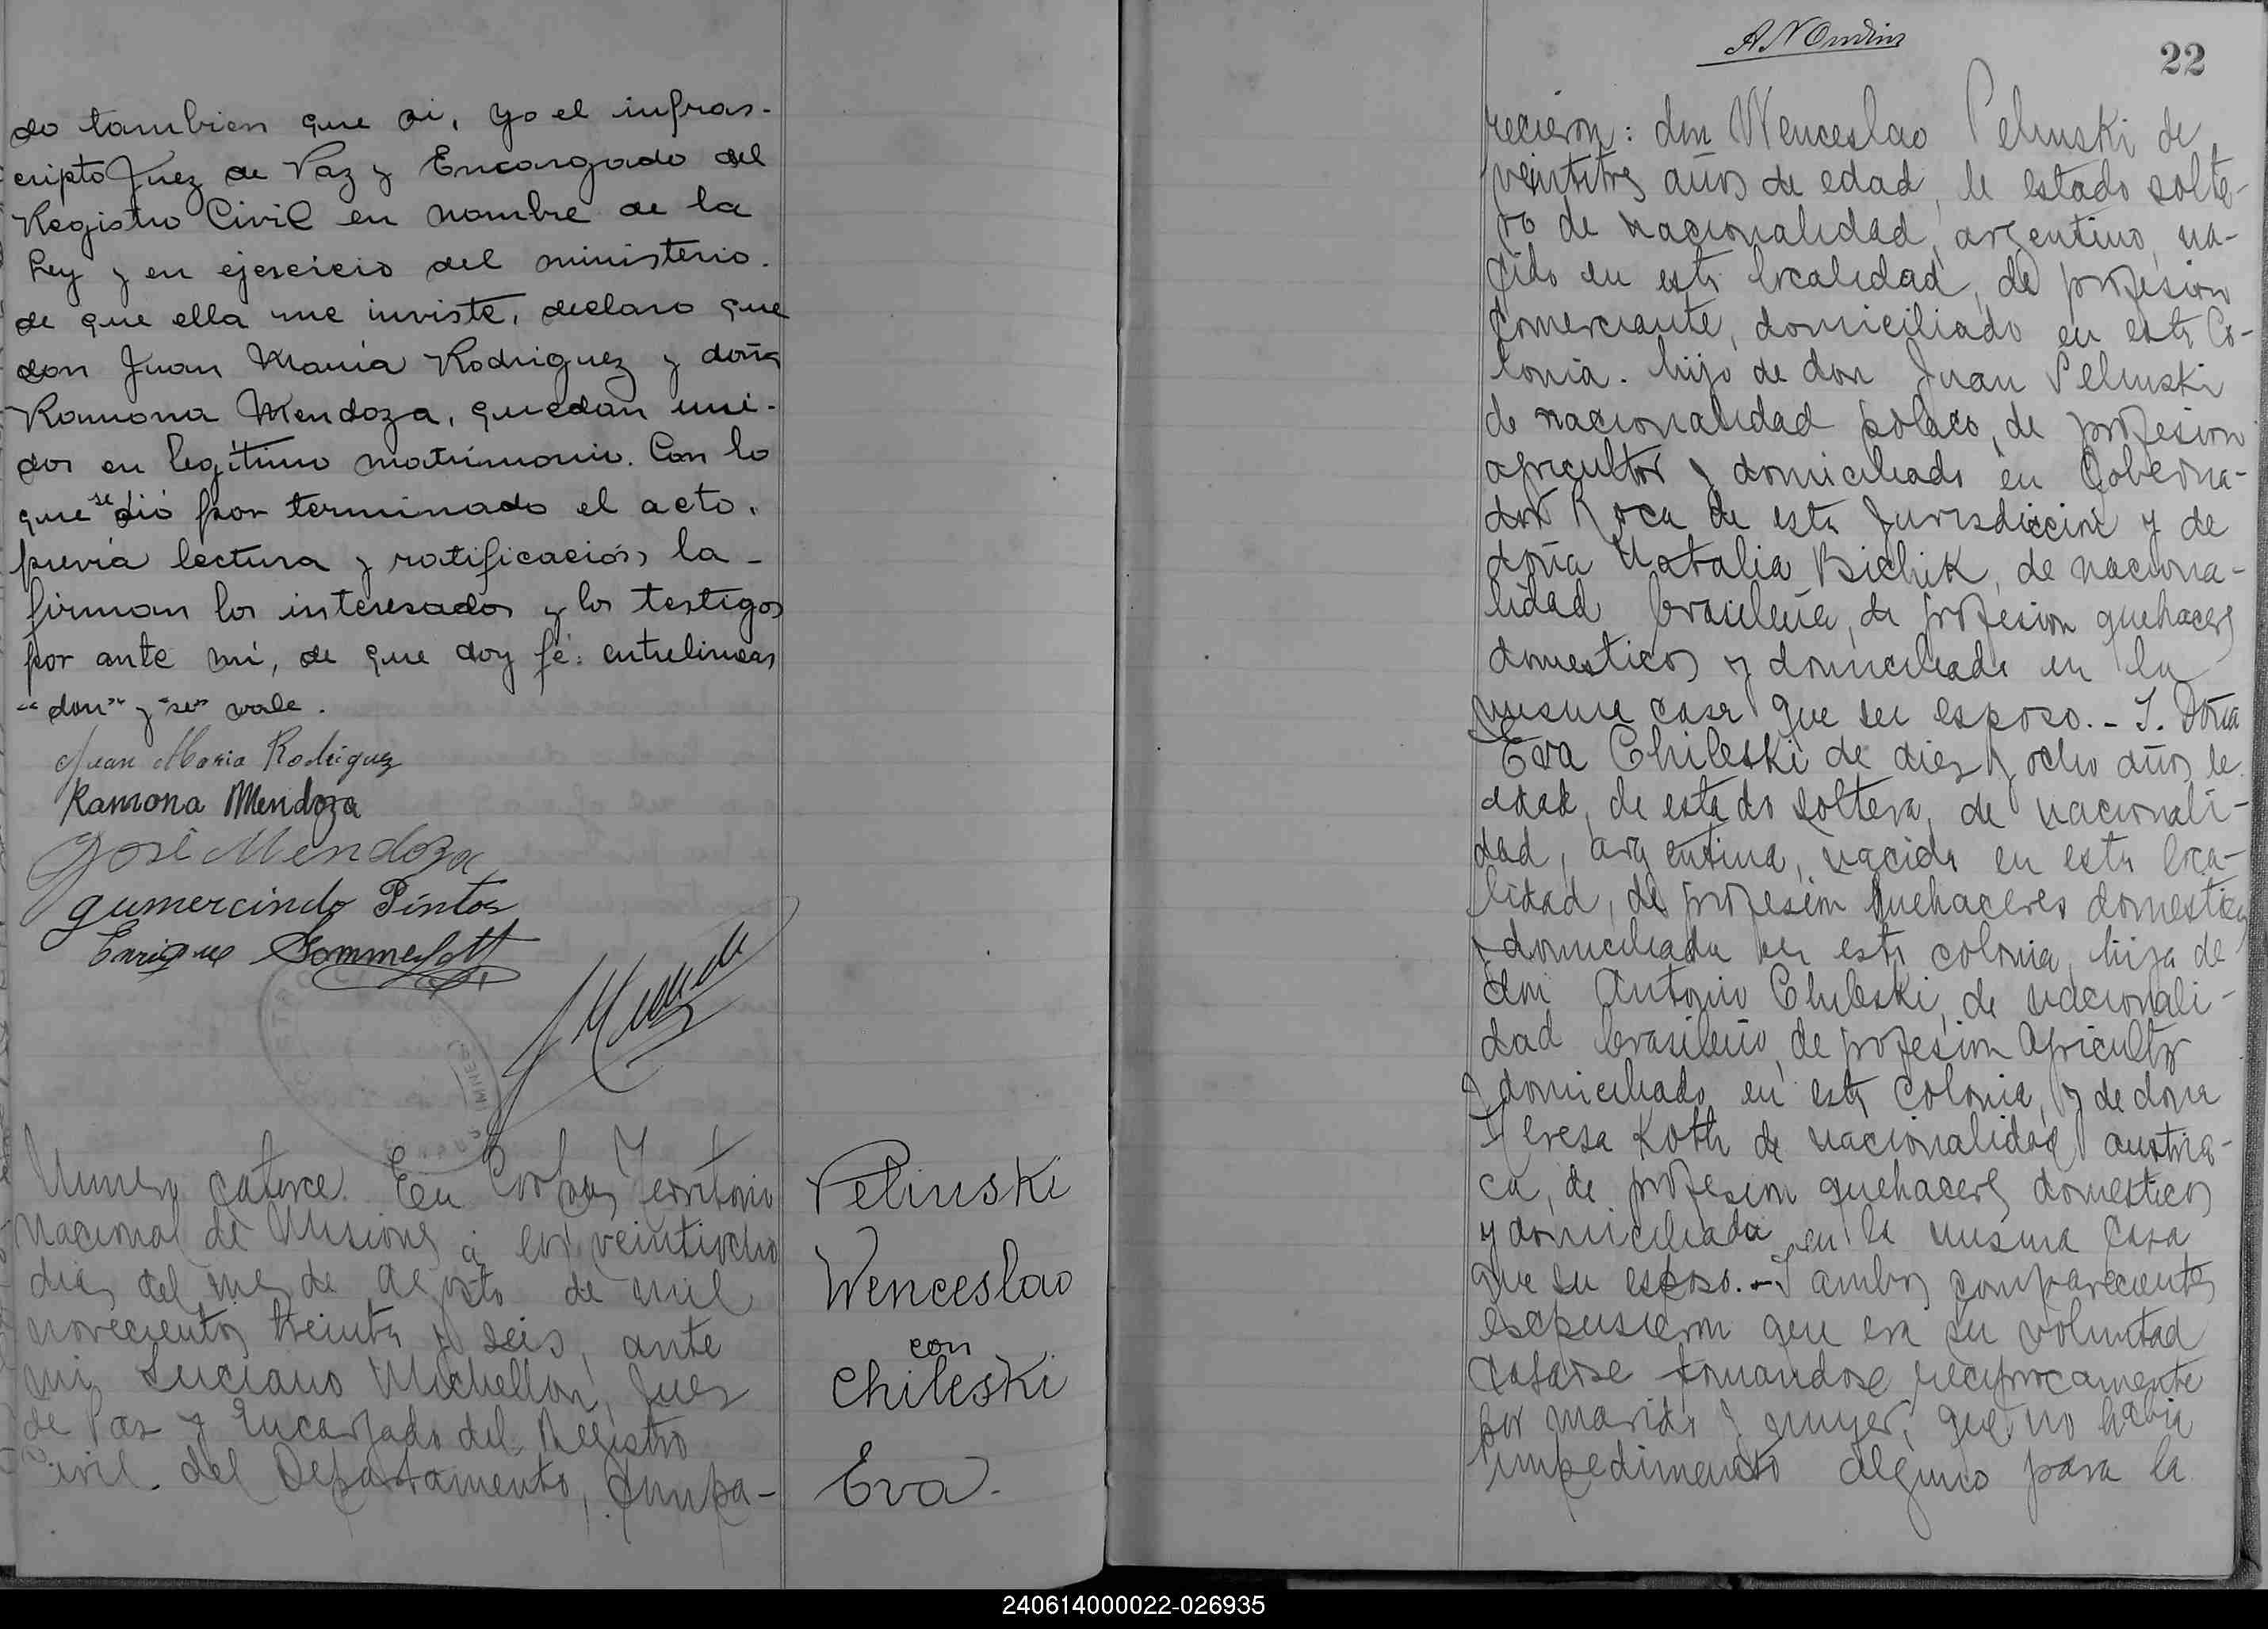 do tambien que si, yo el infras-
cripto Juez de Paz y Encargado del
Registro Civil en nombre de la
Ley y en ejercicio del ministerio.
de que ella me inviste, declaro que
don Juan María Rodriguez y doña
Ramona Mendoza, quedan uni-
dos en legítimo matrimonio. Con lo
que se dió por terminado el acto,
previa lectura y ratificación, la-
firman los interesados y los testigos
por ante mí, de que doy fé: entrelineas
"don" y "se" vale.
Juan Maria Rodriguez
Ramona Mendoza
José Mendoza
gumercindo Pintos
Enrique
Numero catorce. En Corpus Territorio
Nacional de Misiones á los veintiocho
dias del mes de Agosto de mil
novecientos treinta y seis, ante
mi Luciano Michellon, Juez
de Paz y Encargado del Registro
Civil. del Departamento, Compa-
Pelinski
Wenceslao
con
Chileski
Eva.
22
recieron: don Wenceslao Pelinski de
veintitres años de edad, de estado solte-
ro de nacionalidad, argentino, na-
cido en esta localidad, de profesion
Comerciante, domiciliado en esta Co-
lonia. hijo de don Juan Pelinski
de nacionalidad polaco, de profesion
agricultor y domiciliado en Goberna-
dor Roca de esta Jurisdiccion y de
doña Natalia Bichik, de naciona-
lidad brasileña, de profesion quehaceres
domesticos y domiciliada en la
misma casa que su esposo.- Y. Doña
Eva Chileski de diez y ocho años de
edad, de estado soltera, de nacionali-
dad, argentina, nacida en esta loca-
lidad, de profesion Quehaceres domesticos
y domiciliada en esta colonia, hija de
don Antonio Chileski, de nacionali-
dad brasileño, de profesion Agricultor
y domiciliado en esta Colonia, y de doña
Teresa Koth de nacionalidad austria-
ca, de profesion quehaceres domesticos
y domiciliada en la misma Casa
que su esposo.- Y ambos comparecientes
esxpusieron que era su voluntad
Casarse tomandose reciprocamente
por marido y muger, que no habia
impedimento alguno para la
240614000022-026935